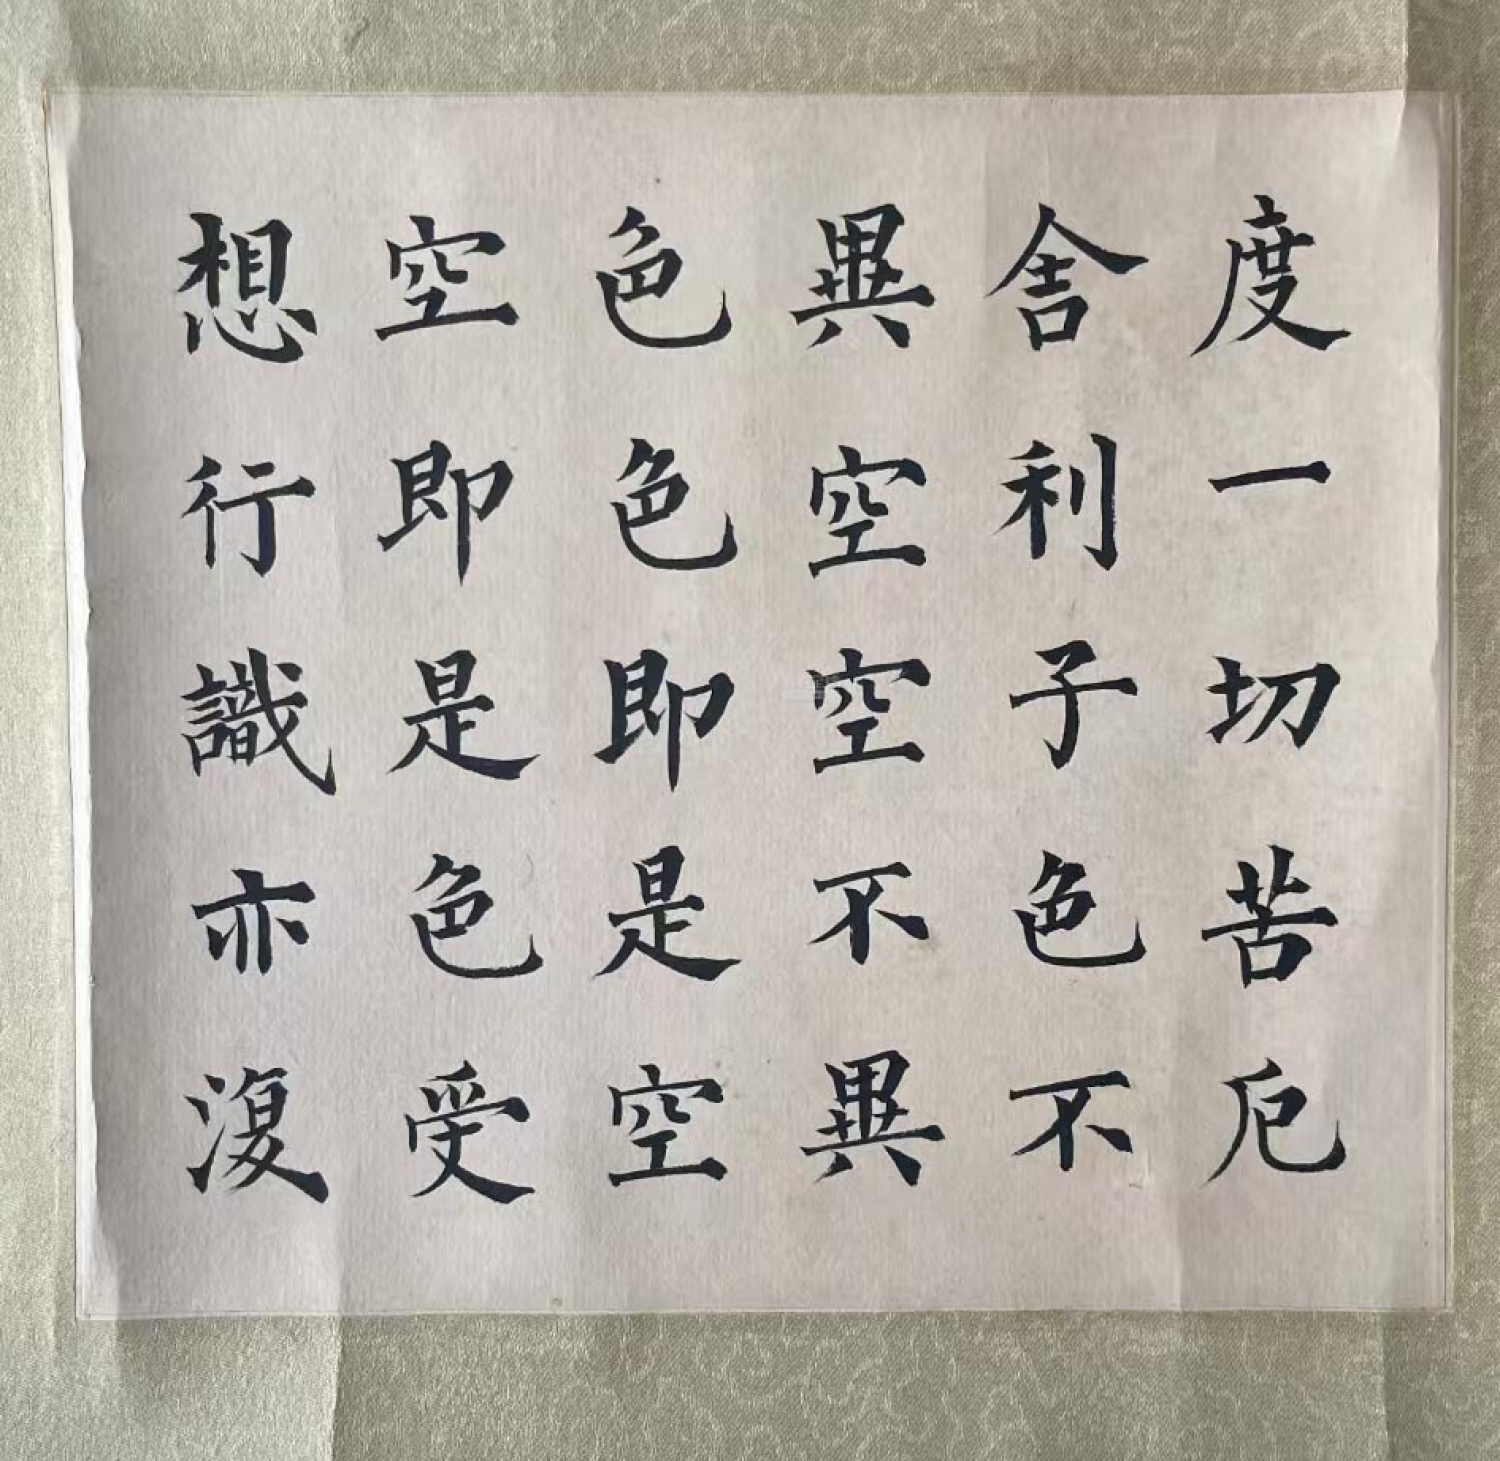 度一切苦厄
舍利子色不
異空空不異
色色即是空
空即是色受
想行識亦復